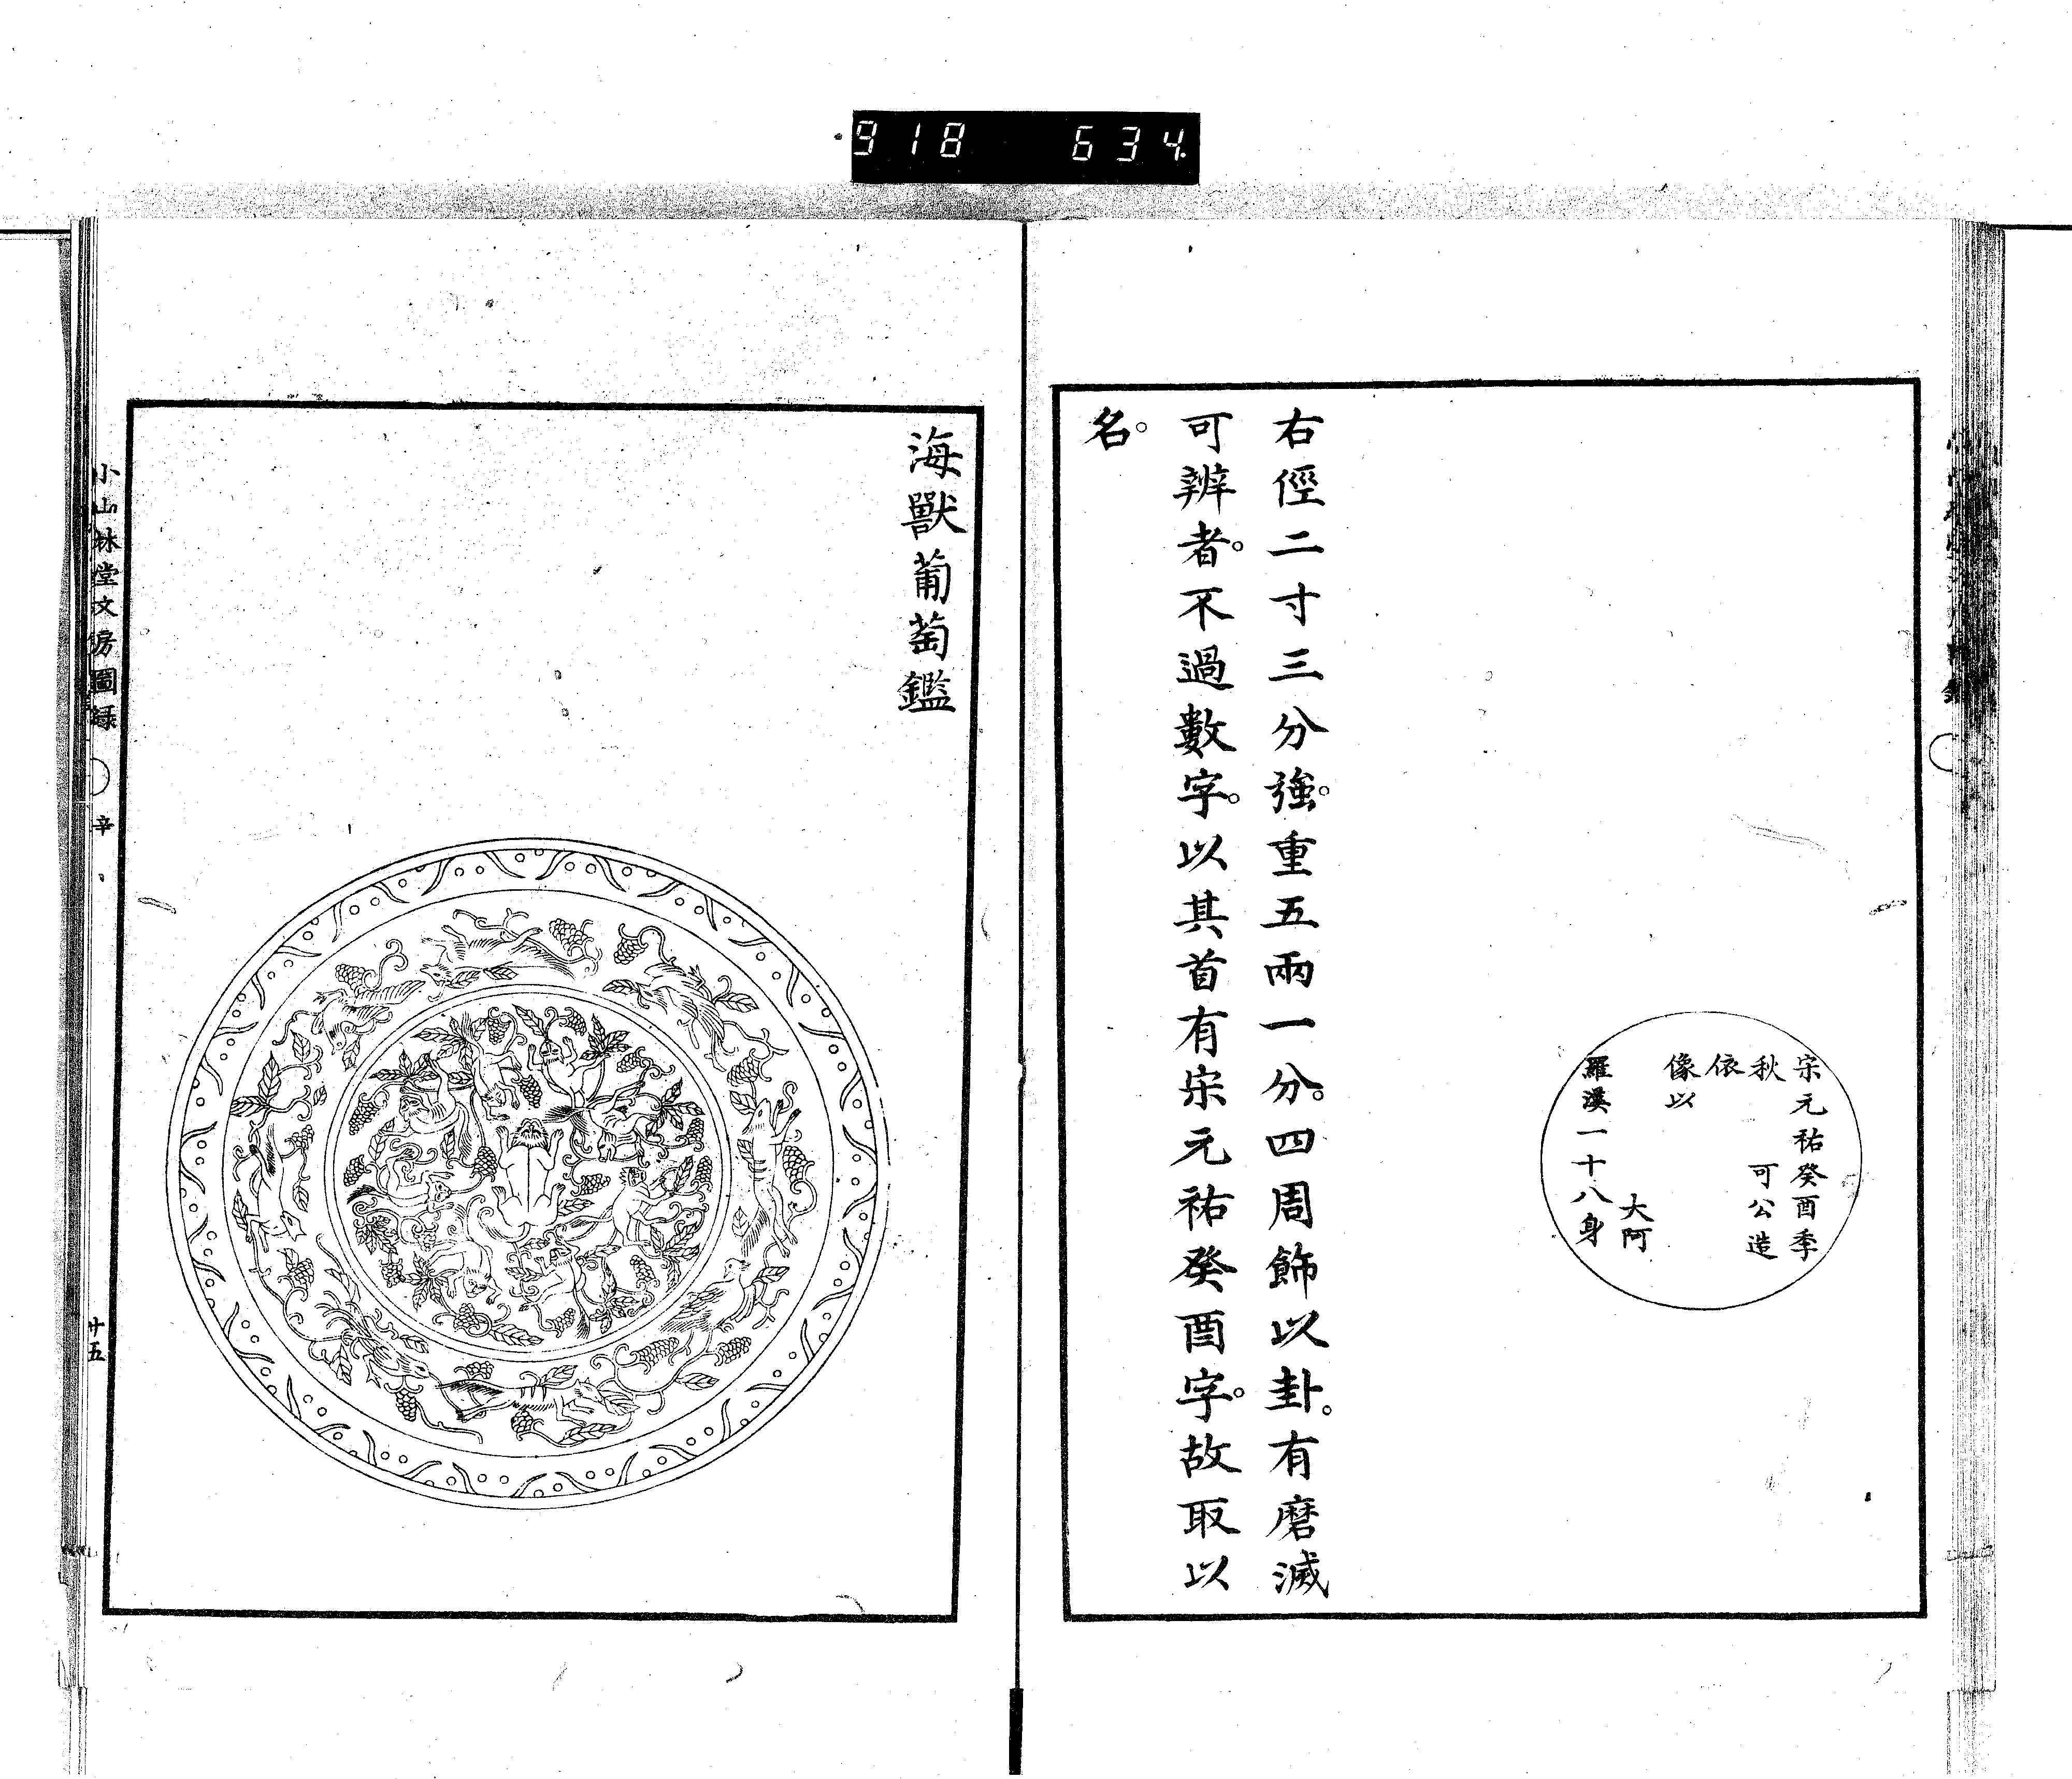 918 634
宋元祐癸酉季
秋 可公造
依
像以
大阿
羅漢一十八身
右徑二寸三分強。重五兩一分。四周飾以卦。有磨滅
可辨者。不過數字。以其首有宋元祐癸酉字。故取以
名。
海獸葡萄鑑
小山林堂文房圖録 辛 廿五